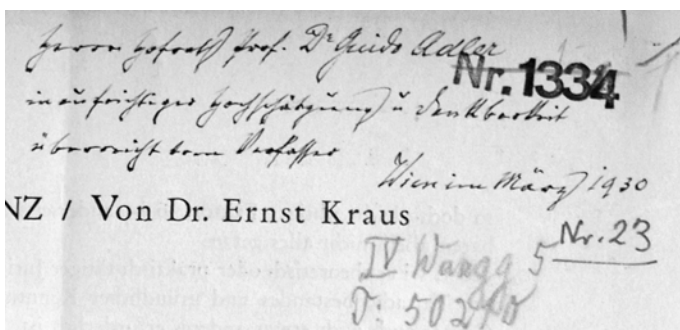 Herrn Hofrath Prof. Dr Guido Adler
Nr. 1334
in aufrichtiger Hochschätzung u Dankbarkeit
überreicht vom Verfasser
Wien im März 1930
NZ / Von Dr. Ernst Kraus
Nr. 23
IV 5
D: 502